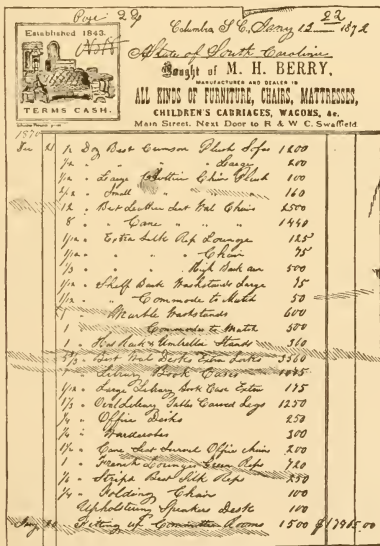 Page 22
22
Columbia S. C. Jany 12 1872
Established 1843.
State of South Carolina
Bought of M. H. BERRY,
MANUFACTURER AND DEALER IN
ALL KINDS OF FURNITURE, CHAIRS, MATTRESSES,
CHILDREN'S CARRIAGES, WAGONS, &c.
TERMS CASH.
Main Street, Next Door to R & W C. Swaffield
1870
Dec 21 1/2 Doz Best Crimson Plush Sofas 1200
1/12 " " " " Large 200
1/12 " Large Chair Plush 100
" Small " " " 160
12 " Best Leather Seat Wal Chairs 2500
8 " Cane " " " 1440
1/12 " Extra Silk Rep Lounge 125
1/12 " " " " Chair 75
1/3 " " " High Back 500
1/12 " Shelf Back Washstands Large 75
1/12 " " Commode to Match 50
1 " Marble Washstands 600
1 " Commode to Match 500
1 " Hat Rack & Umbrella Stands 360
" Best Wal Desks Extra Locks 3560
" Library Book Cases
1/12 " Large Library Book Case Extra 175
1/3 " Oval Library Tables Carved Legs 1250
1/4 " Office Desks 250
1/4 " Wardrobes 300
" Cane Seat Office Chairs 200
1 " French Lounges Green Reps 720
" Striped Back Silk Reps 250
1/4 " Folding Chair 100
Upholstering Speakers Desk 100
Fitting up Committee Rooms 1500 $